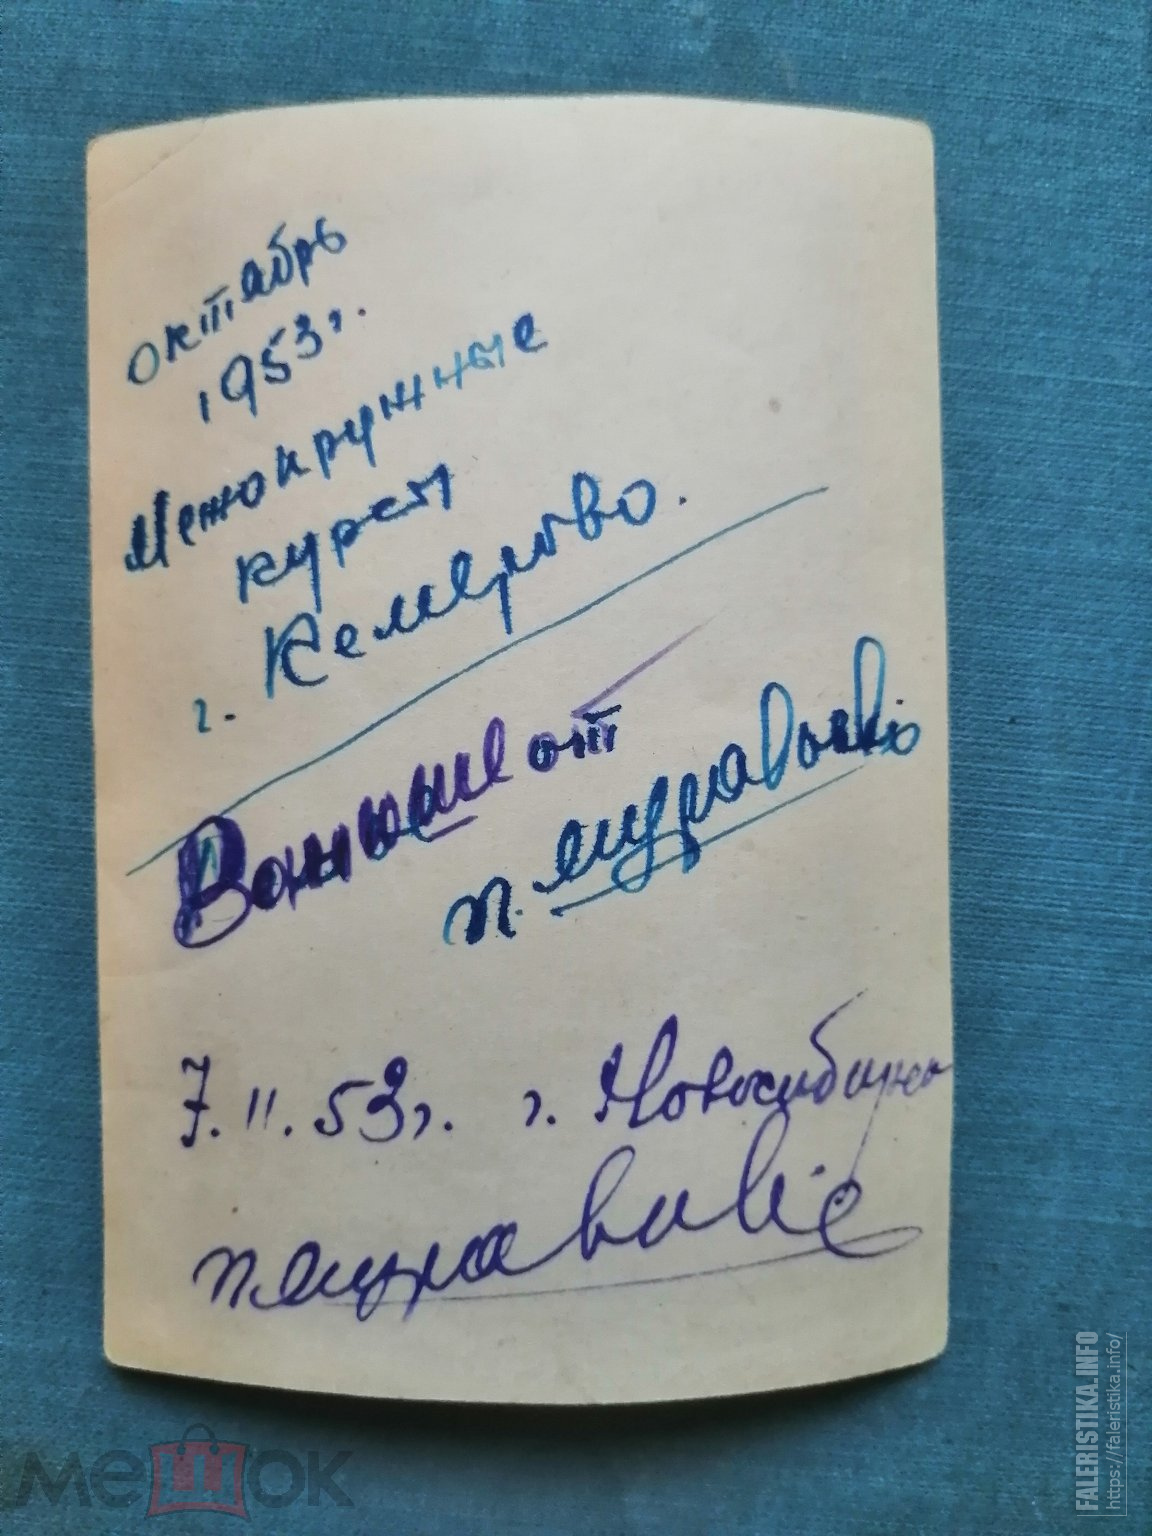 октабрь
1953г.
Межокружные
курсы
г. Кемерово.
от
п. Муравьёв
7.11.53г. г. Новосибирск
п. Муравьёв
МЕШОК
FALERISTIKA.INFO
https://faleristika.info/